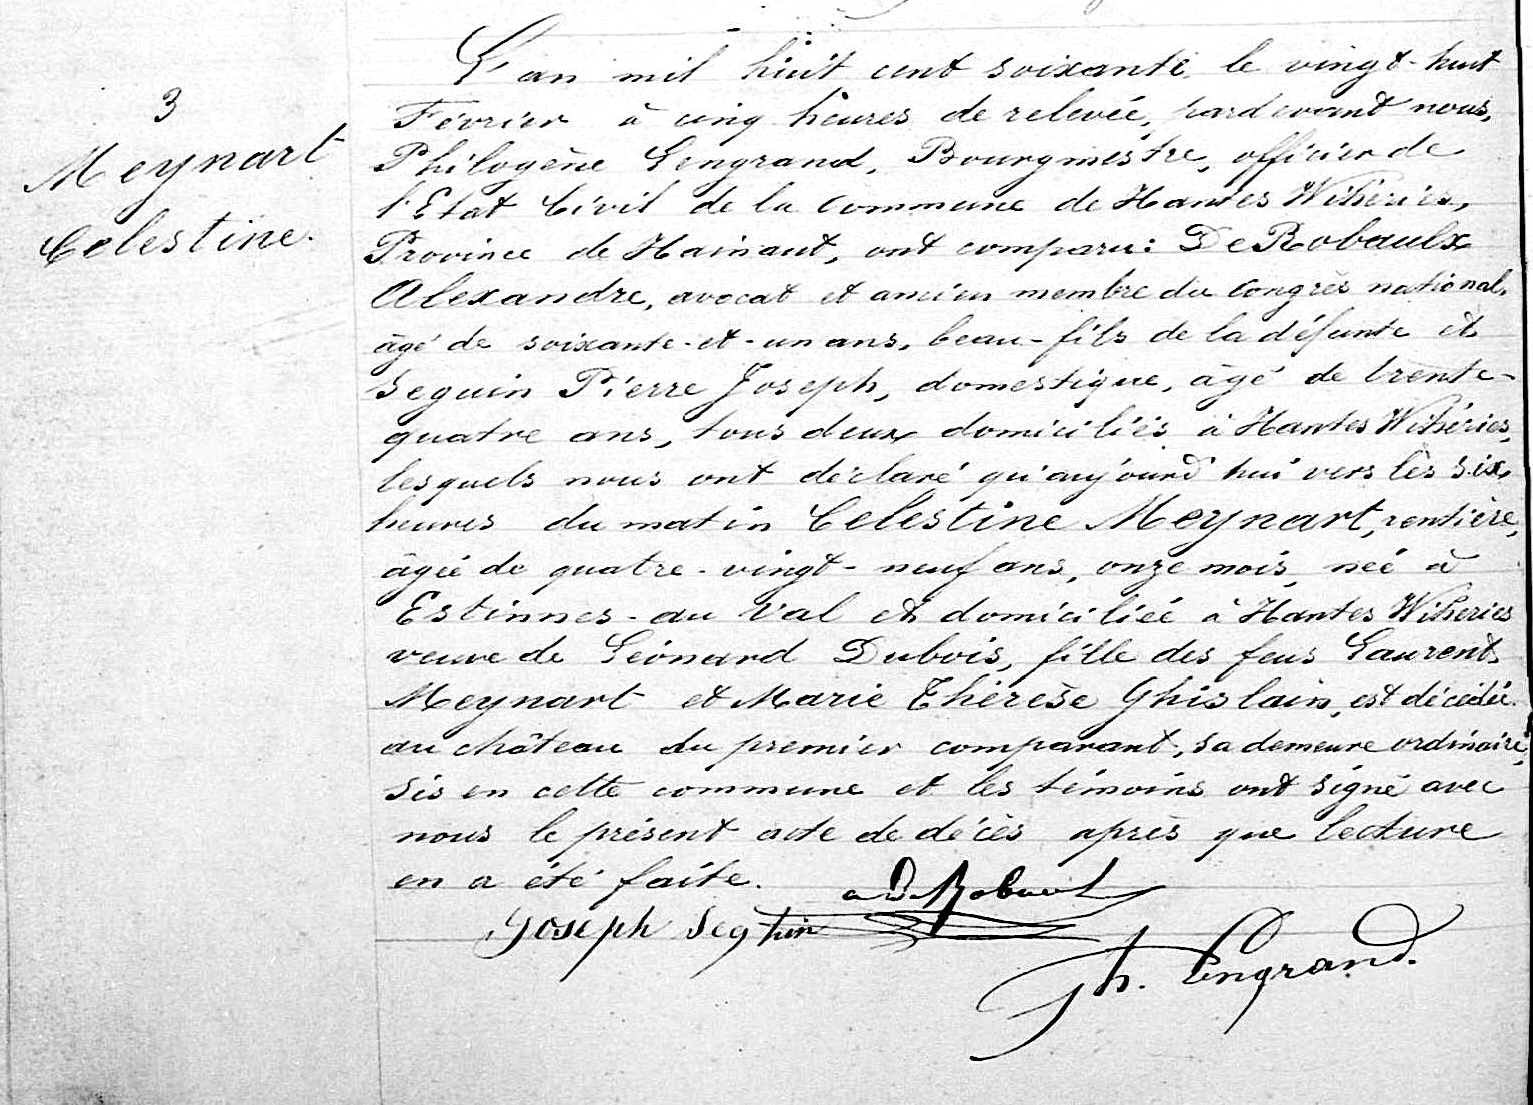 3
Meynart
Celestine.
L'an mil huit cent soixante, le vingt-huit
Février à cinq heures de relevée, pardevant nous,
Philogène Lengrand, Bourgmestre, officier de
l'Etat Civil de la Commune de Hantes Wihéries,
Province de Hainaut, ont comparu: De Robaulx
Alexandre, avocat et ancien membre du Congrès national,
âgé de soixante-et-un ans, beau-fils de la défunte et
Seguin Pierre Joseph, domestique, âgé de trente-
quatre ans, tous deux domiciliés à Hantes Wihéries,
lesquels nous ont déclaré qu'aujourd'hui vers les six
heures du matin Celestine Meynart, rentière,
âgée de quatre-vingt-neuf ans, onze mois, née à
Estinnes-au Val et domiciliée à Hantes Wihéries
veuve de Léonard Dubois, fille des feus Laurent
Meynart et Marie Thérèse Ghislain, est décédée
au château du premier comparant, sa demeure ordinaire,
sis en cette commune et les témoins ont signé avec
nous le présent acte de décès après que lecture
en a été faite.
Joseph Seghin
Ph. Lengrand.